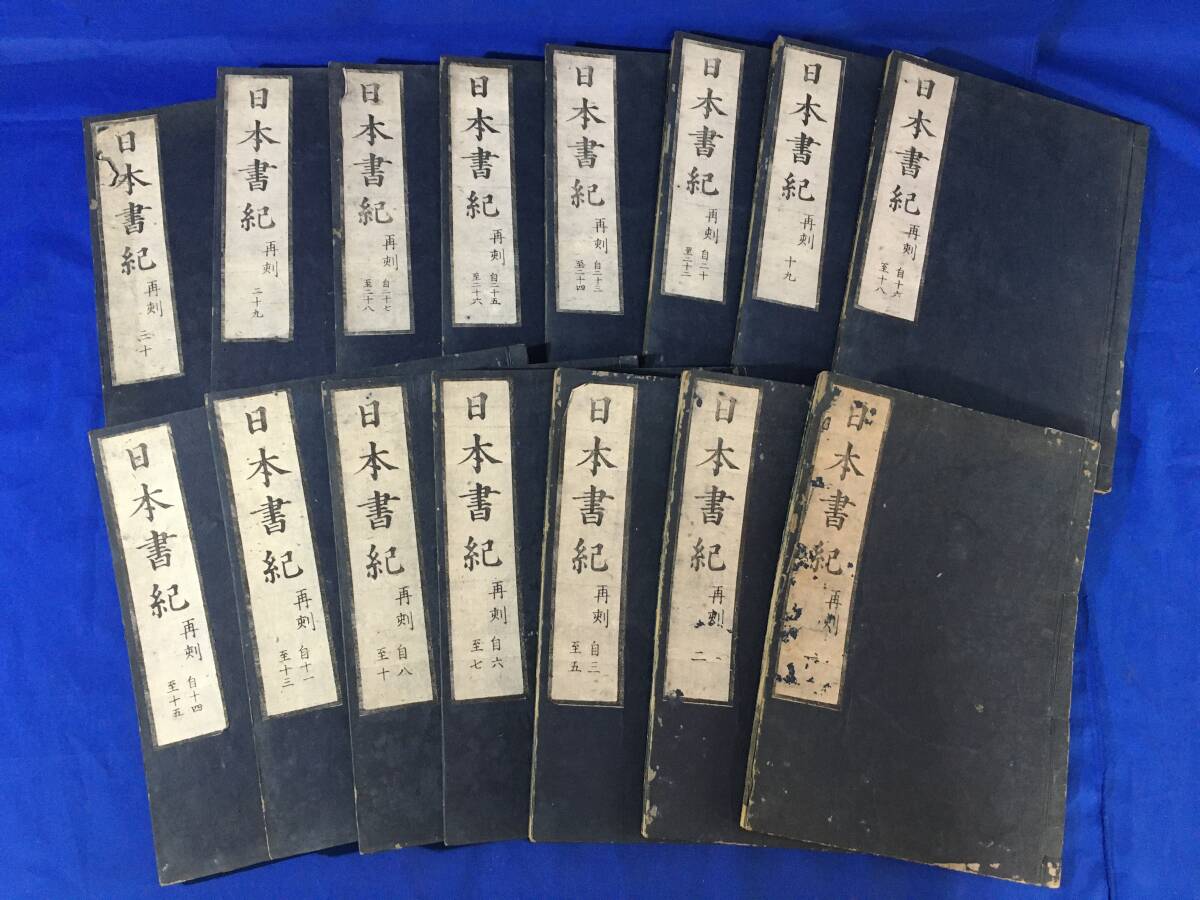 日本書紀 再刻 自十六
至十八
日本書紀 再刻 十九
日本書紀 再刻 自二十
至二十二
日本書紀 再刻 自二十三
至二十四
日本書紀 再刻 自二十五
至二十六
日本書紀 再刻 自二十七
至二十八
日本書紀 再刻 二十九
日本書紀 再刻 三十
日本書紀 再刻
日本書紀 再刻 二
日本書紀 再刻 自三
至五
日本書紀 再刻 自六
至七
日本書紀 再刻 自八
至十
日本書紀 再刻 自十一
至十三
日本書紀 再刻 自十四
至十五